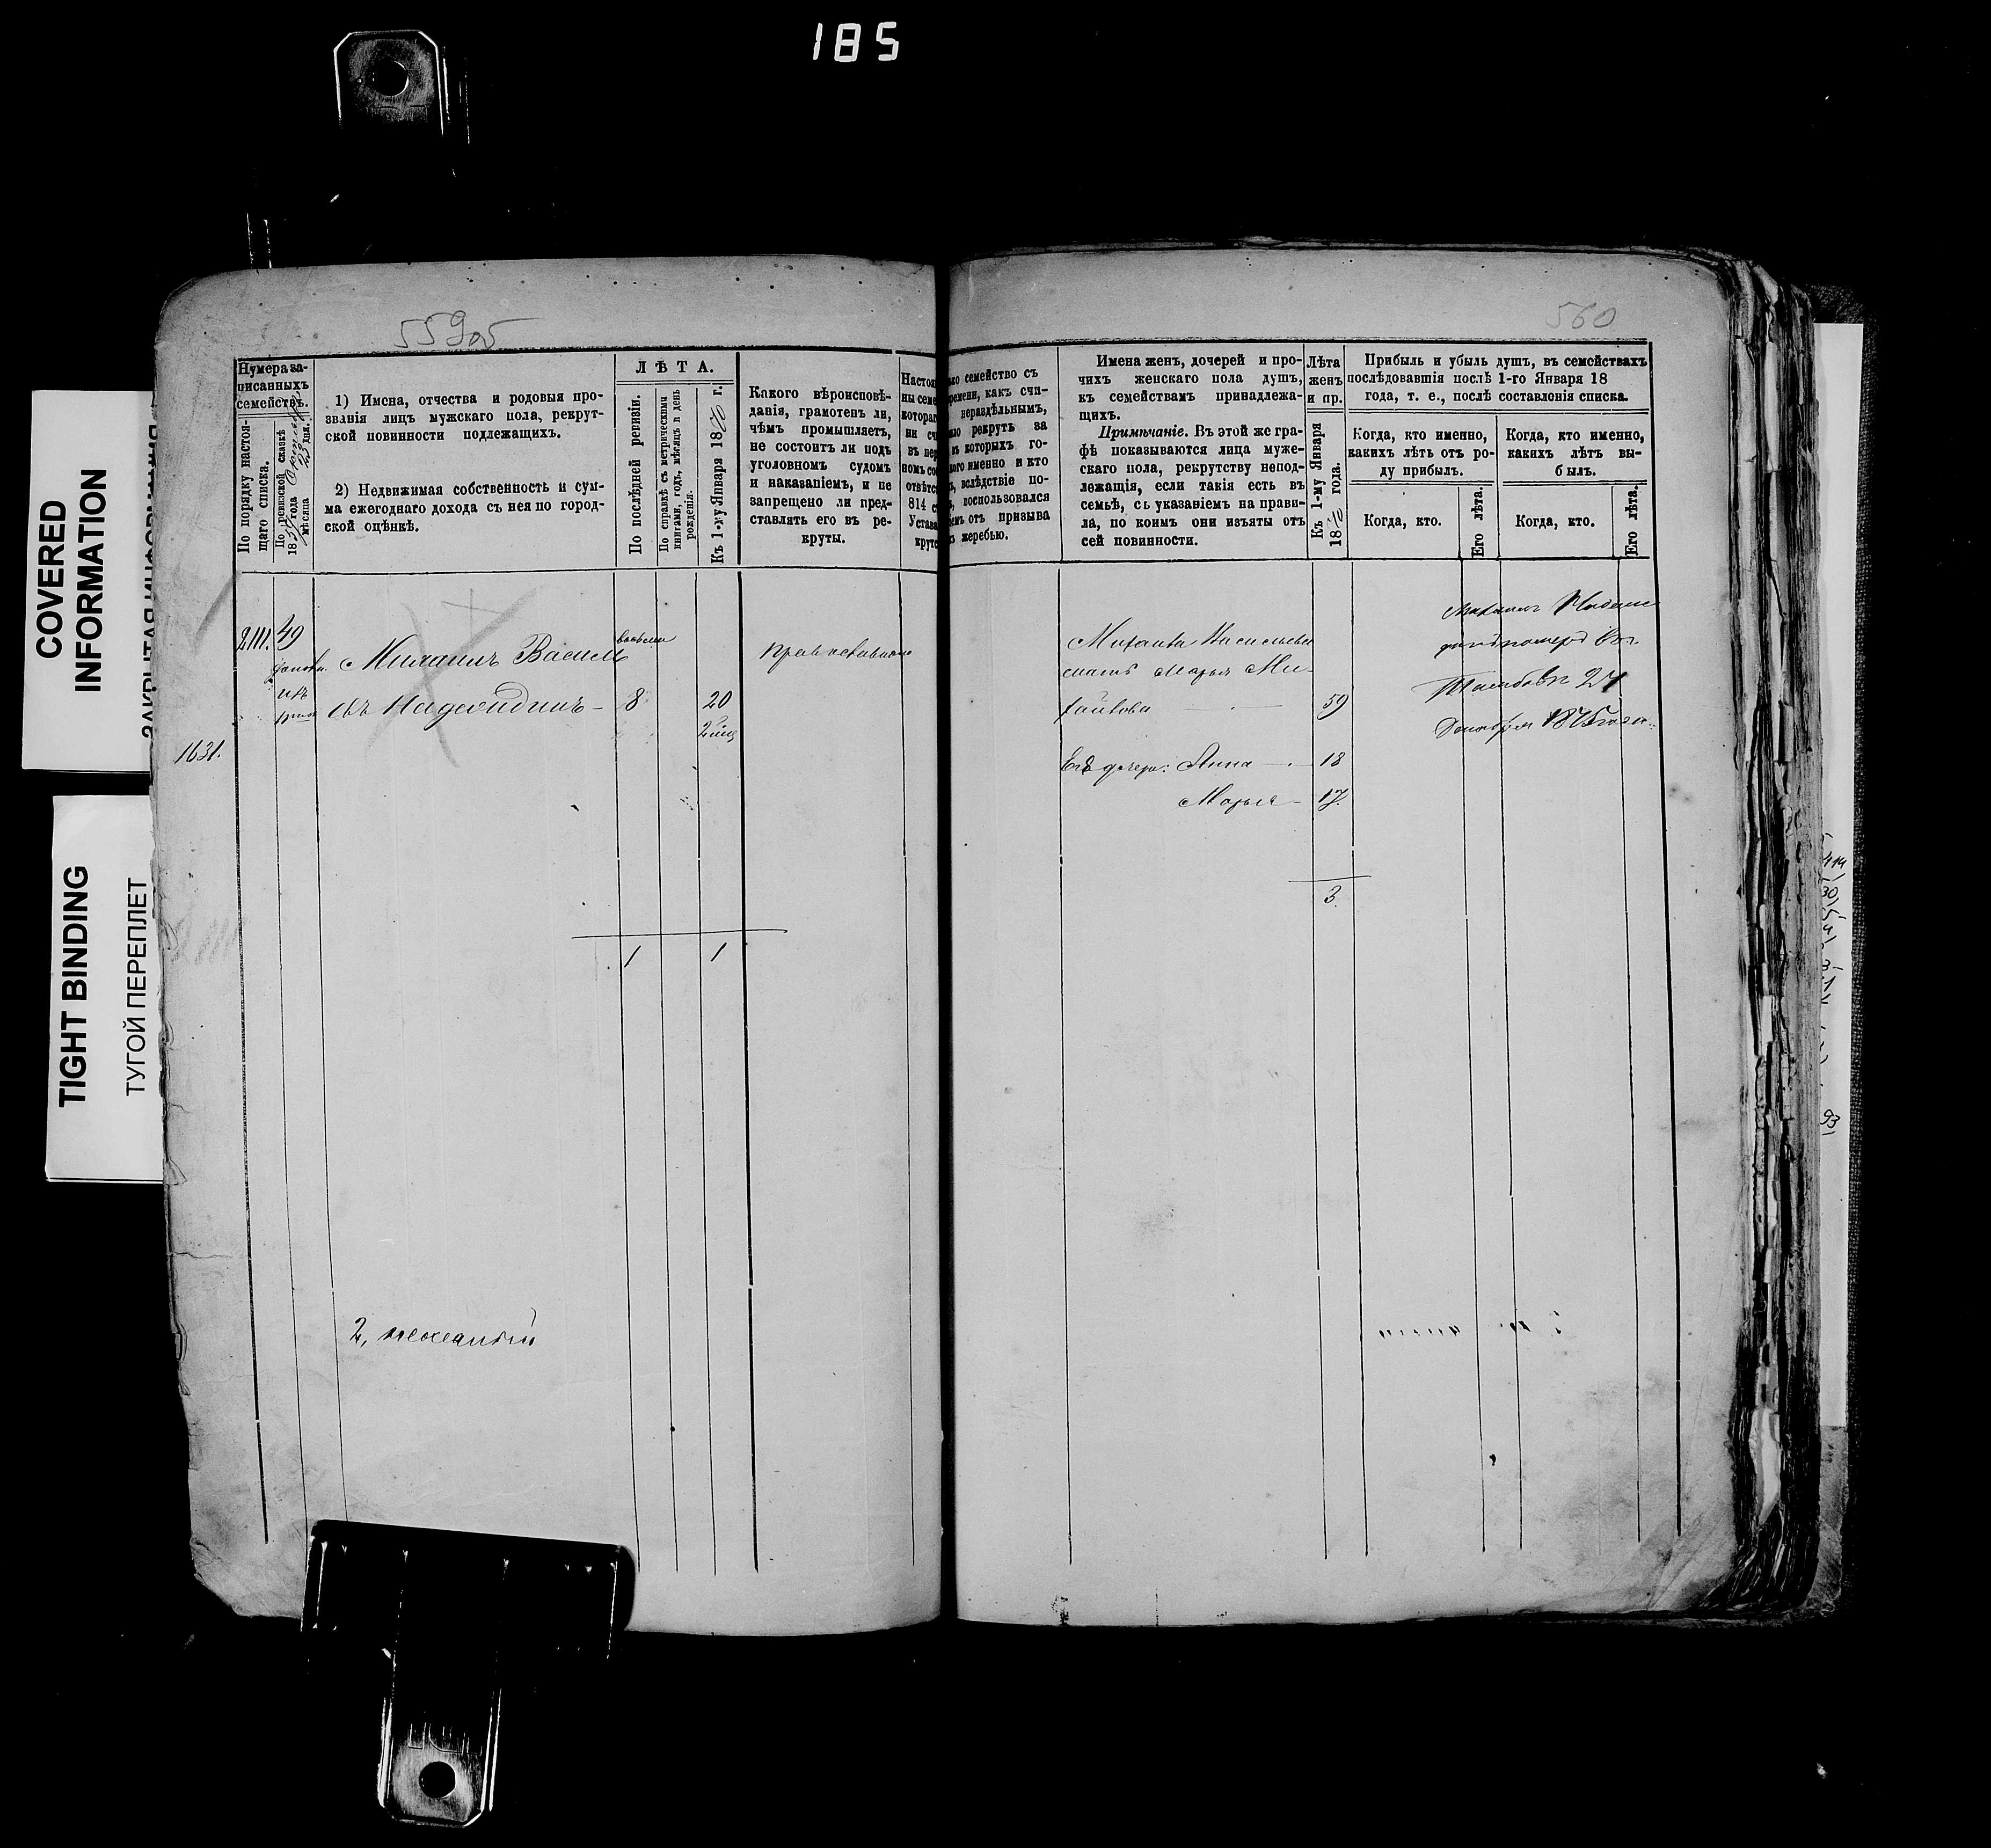 185
COVERED
INFORMATION
TIGHT BINDING
ТУГОЙ ПЕРЕПЛЕТ
559об
Нумера за-
писанныхъ
семействъ.
По порядку настоя-
щаго списка.
По ревизской сказкѣ
18 года
мѣсяца 23 дня.
1) Имена, отчества и родовыя про-
званія лицъ мужскаго пола, рекрут-
ской повинности подлежащихъ.
2) Недвижимая собственность и сум-
ма ежегоднаго дохода съ нея по город-
ской оцѣнкѣ.
ЛѢТА.
По послѣдней ревизіи.
По справкѣ съ метрическими
книгами, годъ, мѣсяцъ и день
рожденія.
Къ 1-му Января 18 г.
Какого вѣроисповѣ-
данія, грамотенъ ли,
чѣмъ промышляетъ,
не состоитъ ли подъ
уголовномъ судомъ
и наказаніемъ, и не
запрещено ли пред-
ставлять его въ ре-
круты.
49
Михаилъ Василь
евъ
8
20
православнаго
1631.
1 1
2,
560
семейство съ
какъ счи-
нераздѣльнымъ,
рекрутъ за
которыхъ го-
именно и кто
вслѣдствіе по-
воспользовался
отъ призыва
жеребью.
Имена женъ, дочерей и про-
чихъ женскаго пола душъ,
къ семействамъ принадлежа-
щихъ.
Примѣчаніе. Въ этой же гра-
фѣ показываются лица муже-
скаго пола, рекрутству непод-
лежащія, если такія есть въ
семьѣ, съ указаніемъ на прави-
ла, по коимъ они изъяты отъ
сей повинности.
Лѣта
женъ
и пр.
Къ 1-му Января
18 года.
Прибыль и убыль душъ, въ семействахъ
послѣдовавшія послѣ 1-го Января 18
года, т. е., послѣ составленія списка.
Когда, кто именно,
какихъ лѣтъ отъ ро-
ду прибылъ.
Когда, кто.
Его лѣта.
Когда, кто именно,
какихъ лѣтъ вы-
былъ.
Когда, кто.
Его лѣта.
Михаила Васильева
мать Марья Ми-
хайлова 59
Его дочери: Анна 18
Марья 17
3
Тамбовѣ 27
Декабря 1875 года